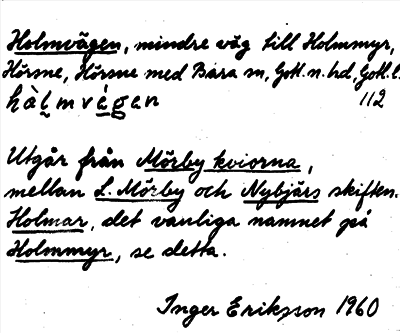 Holmvägen, mindre väg till Holmmyr,
Hörsne, Hörsne med Bara sn, Gotl. n. hd, Gotl. l.
hàl̨mvé̱gan 112
Utgår från Mörby kviorna,
mellan L. Mörby och Nybjärs skiften.
Holmar, det vanliga namnet på
Holmmyr, se detta.
Inger Eriksson 1960